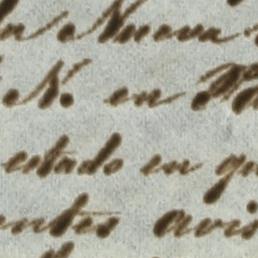 en Nueva
N. en
estado en
entes avis